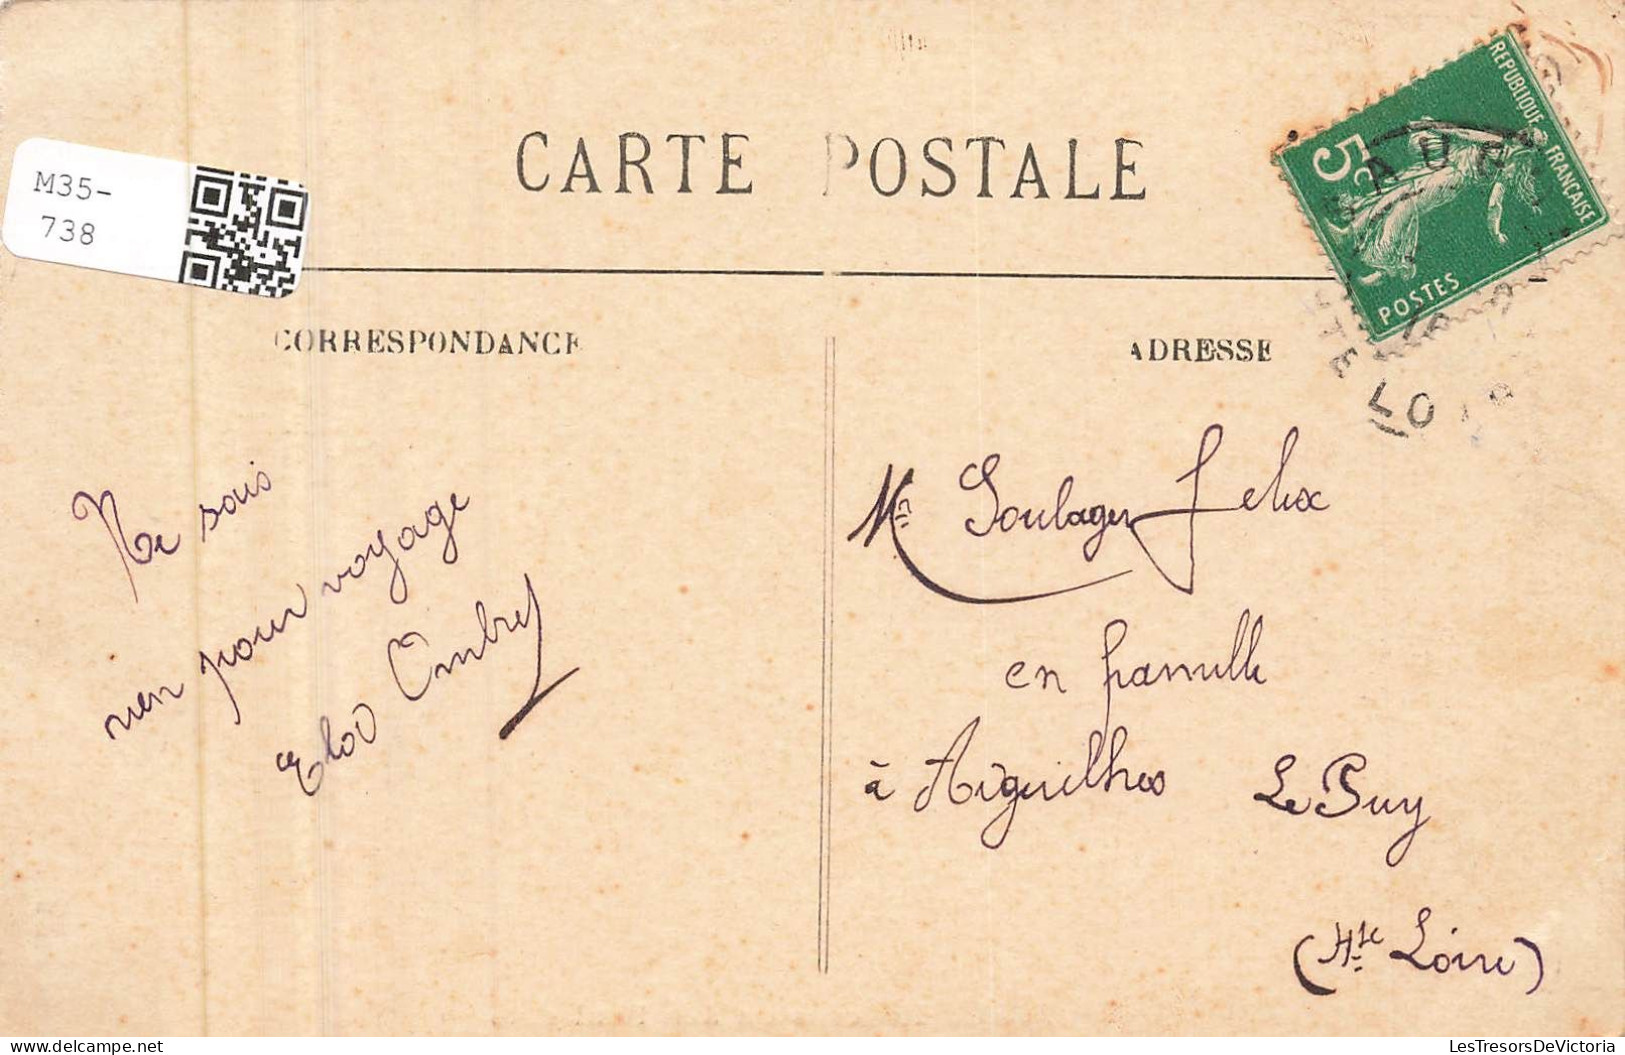 M35-
738
CARTE POSTALE
REPUBLIQUE FRANÇAISE
5c
POSTES
CORRESPONDANCE
ADRESSE
Ne sais
rien pour voyage
Mr Soulager Felix
en famille
à Aiguilhes Le Puy
(Hte Loire)
LesTresorsDeVictoria